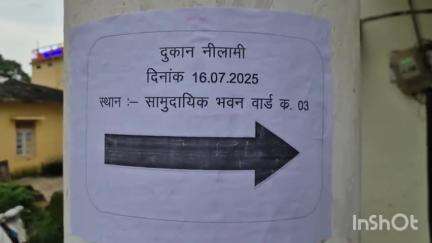 दुकान नीलामी
दिनांक 16.07.2025
स्थान :– सामुदायिक भवन वार्ड क. 03
InShOt